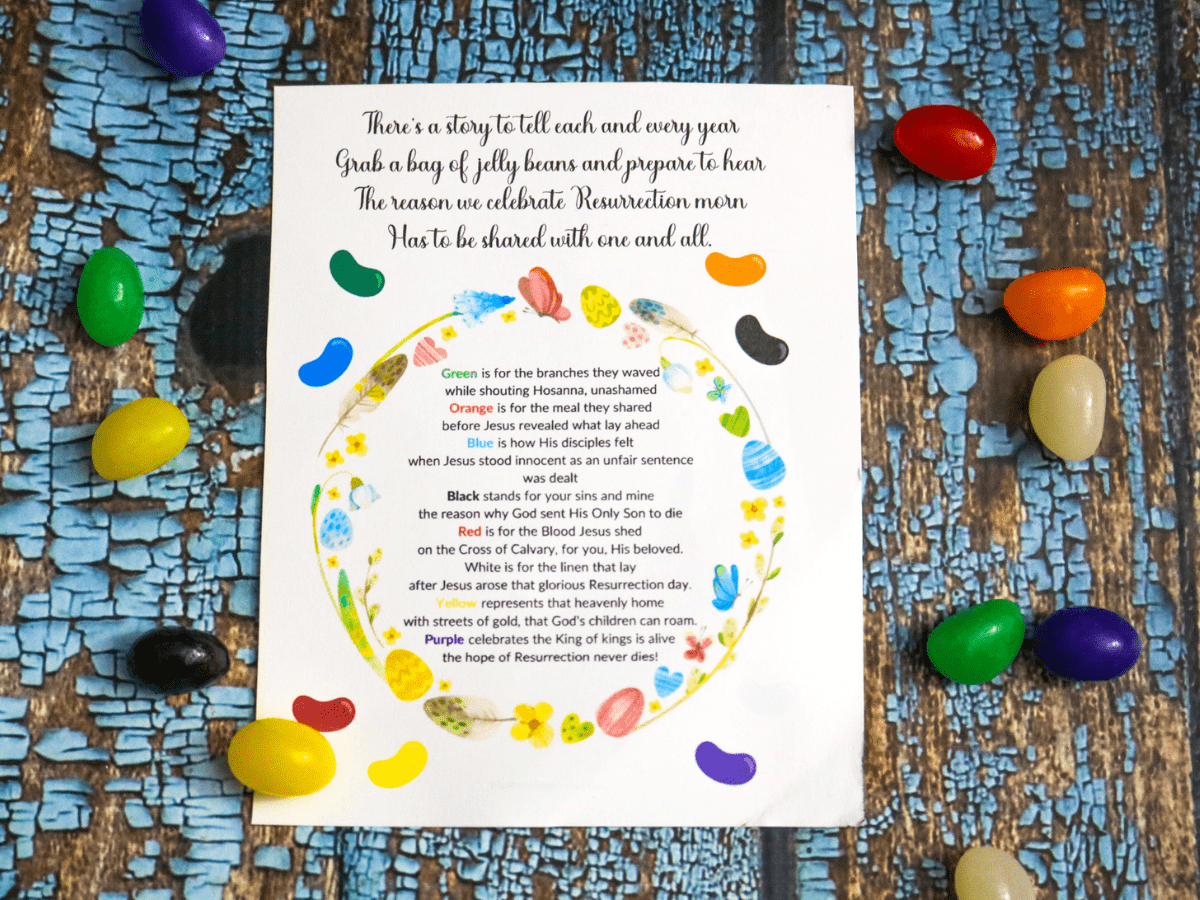 There's a story to tell each and every year
Grab a bag of jelly beans and prepare to hear
The reason we celebrate Resurrection morn
Has to be shared with one and all.
Green is for the branches they waved
while shouting Hosanna, unashamed
Orange is for the meal they shared
before Jesus revealed what lay ahead
Blue is how His disciples felt
when Jesus stood innocent as an unfair sentence
was dealt
Black stands for your sins and mine
the reason why God sent His Only Son to die
Red is for the Blood Jesus shed
on the Cross of Calvary, for you, His beloved.
White is for the linen that lay
after Jesus arose that glorious Resurrection day.
Yellow represents that heavenly home
with streets of gold, that God's children can roam.
Purple celebrates the King of kings is alive
the hope of Resurrection never dies!